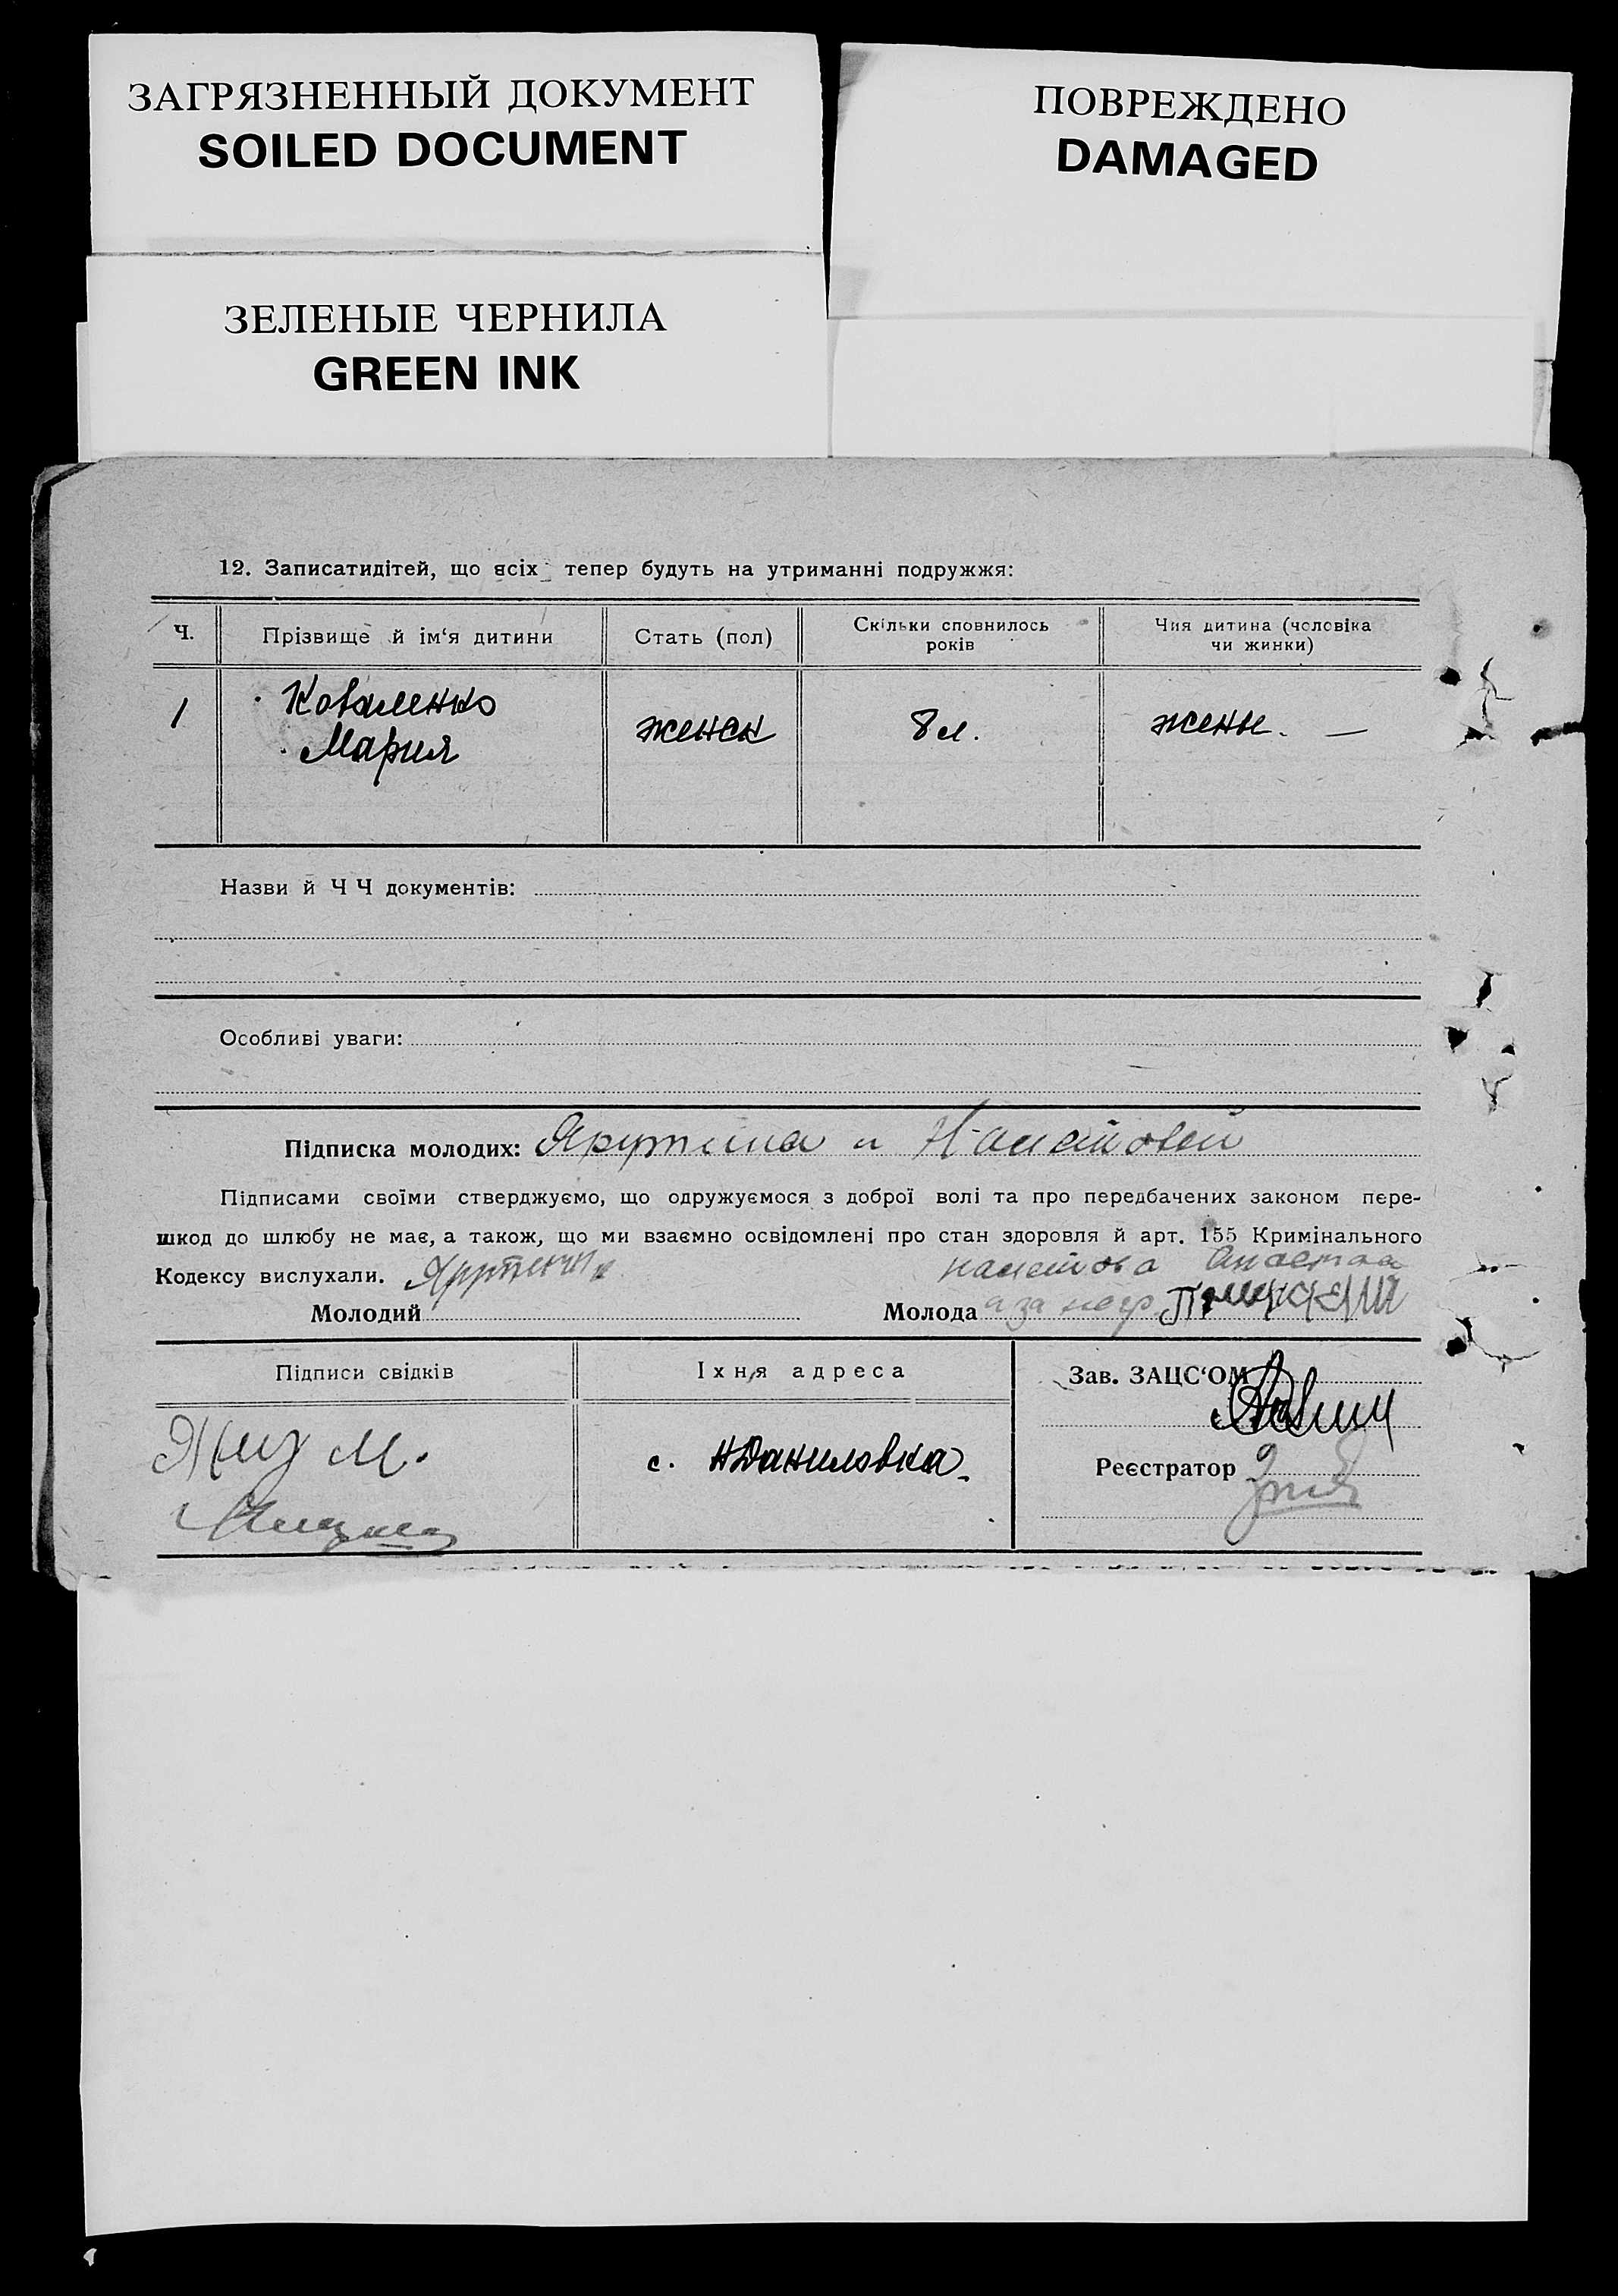 ЗАГРЯЗНЕННЫЙ ДОКУМЕНТ
SOILED DOCUMENT
ПОВРЕЖДЕНО
DAMAGED
ЗЕЛЕНЫЕ ЧЕРНИЛА
GREEN INK
12. Записатидітей, що всіх тепер будуть на утриманні подружжя:
Ч. Прізвище й ім‘я дитини Стать (пол) Скільки сповнилось років Чия дитина (чоловіка чи жинки)
1 Коваленко женск 8 л. жены. —
Мария
Назви й ЧЧ документів:
Особливі уваги:
Підписка молодих: и
Підписами своїми стверджуємо, що одружуємося з доброї волі та про передбачених законом пере-
шкод до шлюбу не має, а також, що ми взаємно освідомлені про стан здоровля й арт. 155 Кримінального
Кодексу вислухали.
Молодий Молода
Підписи свідків Їхня адреса Зав. ЗАЦС‘ОМ
с. НДаниловка
Реєстратор